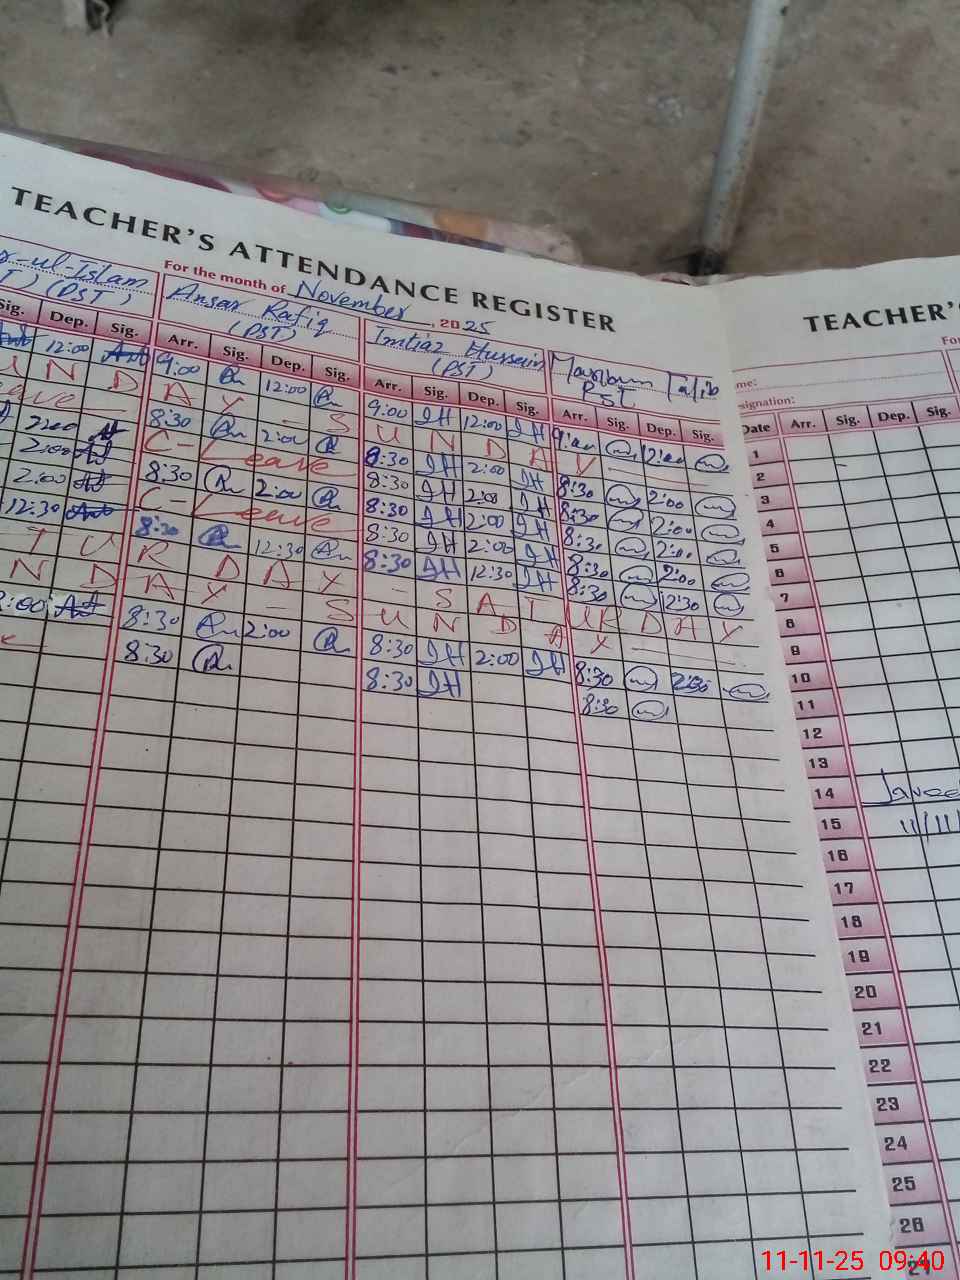 TEACHER'S ATTENDANCE REGISTER
For the month of November, 2025
-ul-Islam
(PST)
Ansar Rafiq
(PST)
Imtiaz Hussain
(PST)
Talib
PST
Sig. Dep. Sig. Arr. Sig. Dep. Sig. Arr. Sig. Dep. Sig. Arr. Sig. Dep. Sig.
12:00 9:00 12:00 9:00 IH 12:00 IH 9:00 12:00
U N D A Y - S U N D A Y
Leave 8:30 2:00 8:30 IH 2:00 IH 8:30 2:00
2:00 C-Leave 8:30 IH 2:00 IH 8:30 2:00
2:00 8:30 2:00 8:30 IH 2:00 IH 8:30 2:00
2:00 C-Leave 8:30 IH 2:00 IH 8:30 2:00
12:30 8:30 12:30 8:30 IH 12:30 IH 8:30 12:30
T U R D A Y - S A T U R D A Y
N D A Y - S U N D A Y
2:00 8:30 2:00 8:30 IH 2:00 IH 8:30
8:30 8:30 IH 8:30
TEACHER'S
Fo
me:
signation:
Date Arr. Sig. Dep. Sig.
1
2
3
4
5
6
7
8
9
10
11
12
13
14
15
11/11/
16
17
18
19
20
21
22
23
24
25
26
27
11-11-25 09:40